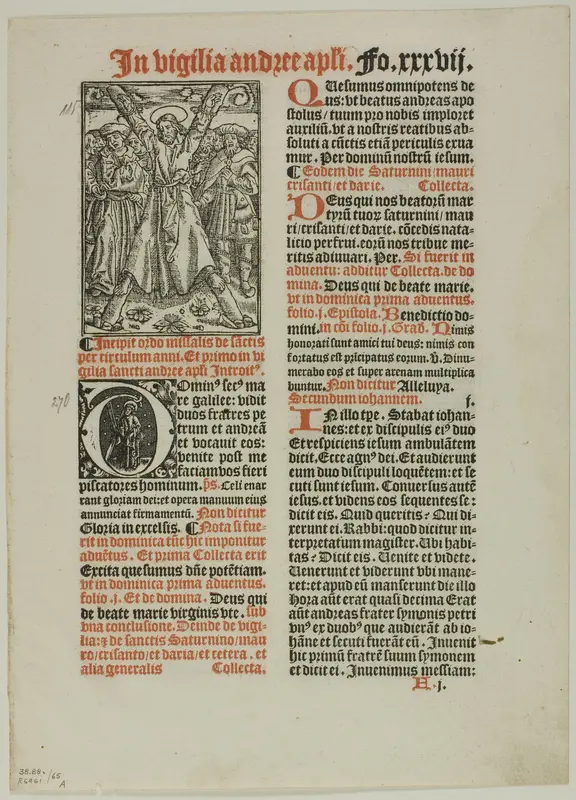 In vigilia andree apli. Fo. xxxvij.
115
¶ Incipit ordo missalis de sāctis
per circulum anni. Et primo in vi
gilia sancti andree apli Introitꝰ.
270
DOminꝰ secꝰ ma
re galilee: vidit
duos fratres pe
trum et andreā
et vocauit eos:
venite post me
faciam vos fieri
piscatores hominum. p̄s. Celi enar
rant gloriam dei: et opera manuum eius
annunciat firmamentū. Non dicitur
Gloria in excelsis. ¶ Nota si fue-
rit in dominica tūc hic imponitur
aduētus. Et prima Collecta erit
Excita quesumus dn̄e potētiam.
vt in dominica prima aduentus.
folio .j. Et de domina. Deus qui
de beate marie virginis vte. sub
vna conclusione. Deinde de vigi-
lia: ⁊ de sanctis Saturnino/mau
ro/crisanto/et daria/et cetera. et
alia generalis Collecta.
QUesumus omnipotens de
us: vt beatus andreas apo
stolus/tuum pro nobis imploret
auxiliū. vt a nostris reatibus ab-
soluti a cūctis etiā periculis exua
mur. Per dominū nostrū iesum.
¶ Eodem die Saturnini/mauri
crisanti/et darie. Collecta.
DEus qui nos beatorū mar
tyrū tuoꝝ saturnini/mau
ri/crisanti/et darie. cōcedis nata-
licio perfrui. eorū nos tribue me-
ritis adiuuari. Per. Si fuerit in
aduentu: additur Collecta. de do
mina. Deus qui de beate marie.
vt in dominica prima aduentus.
folio .j. Epistola. Benedictio do-
mini. in cōi folio .j. Grad. Nimis
honorati sunt amici tui deus: nimis con
fortatus est pricipatus eorum. ℣. Dinu-
merabo eos et super arenam multiplica
buntur. Non dicitur Alleluya.
Secundum iohannem. j.
IN illo tpe. Stabat iohan-
nes: et ex discipulis eiꝰ duo
Et respiciens iesum ambulātem
dicit. Ecce agnꝰ dei. Et audierunt
eum duo discipuli loquētem: et se
cuti sunt iesum. Conuersus autē
iesus. et videns eos sequentes se:
dicit eis. Quid queritis? Qui di-
xerunt ei. Rabbi: quod dicitur in-
terpretatum magister. Vbi habi-
tas? Dicit eis. Uenite et videte.
Uenerunt et viderunt vbi mane-
ret: et apud eū manserunt die illo
Hora aūt erat quasi decima Erat
aūt andreas frater symonis petri
vnꝰ ex duobꝰ que audierāt ab io-
hāne et secuti fuerāt eū. Inuenit
hic primū fratrē suum symonem
et dicit ei. Inuenimus messiam:
A .j.
38.88.
R6461 /65
A